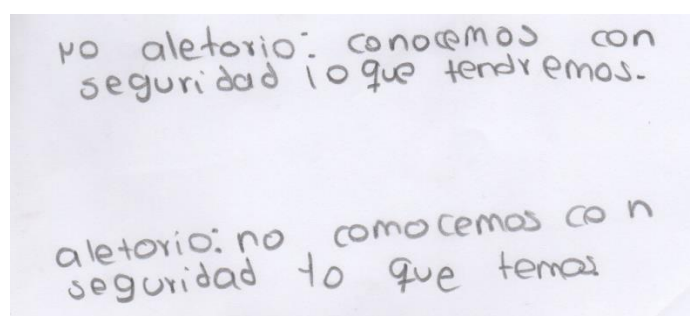 no aletorio: conocemos con
seguridad lo que tendremos.
aletorio: no comocemos con
seguridad lo que temos